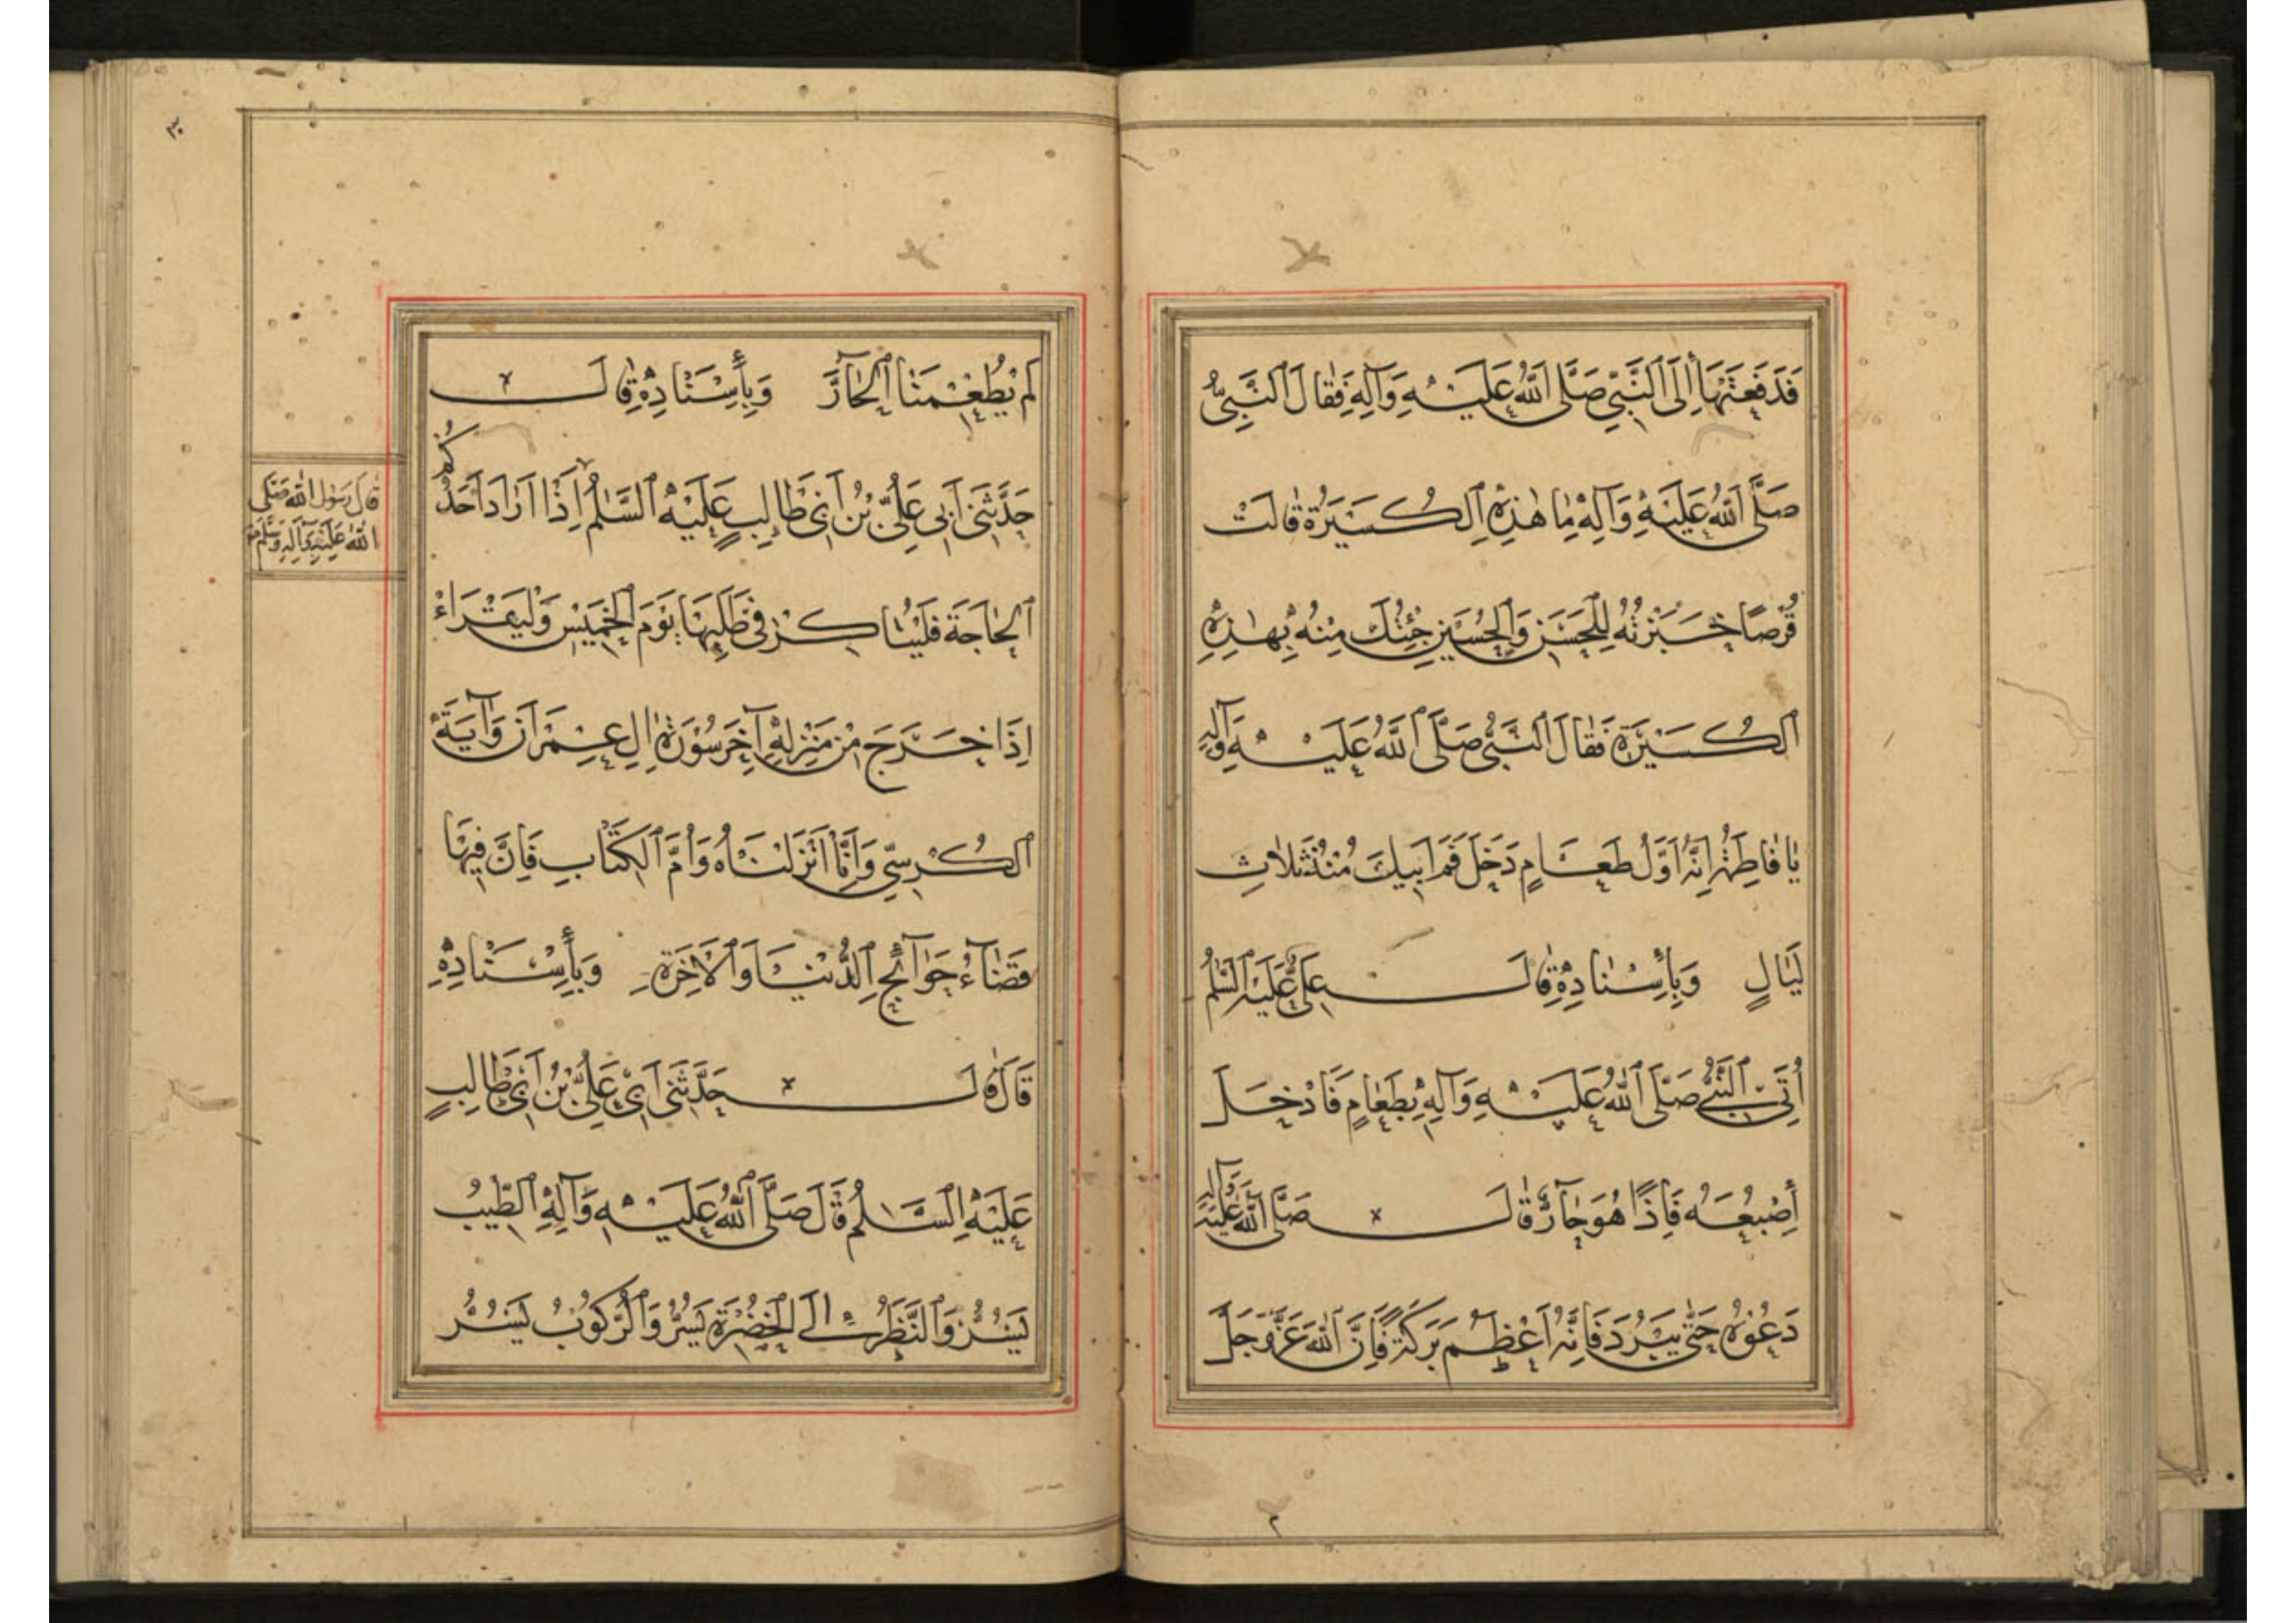 فَدَفَعَتْهَا إِلَى النَّبِيِّ صَلَّى اللّٰهُ عَلَيْهِ وَآلِهِ فَقَالَ النَّبِيُّ
صَلَّى اللّٰهُ عَلَيْهِ وَآلِهِ مَا هٰذِهِ الْكُسَيْرَةُ قَالَتْ
قُرْصًا خَبَزْتُهُ لِلْحَسَنِ وَالْحُسَيْنِ جِئْتُكَ مِنْهُ بِهٰذِهِ
الْكُسَيْرَةِ فَقَالَ النَّبِيُّ صَلَّى اللّٰهُ عَلَيْهِ وَآلِهِ
يَا فَاطِمَةُ إِنَّهُ أَوَّلُ طَعَامٍ دَخَلَ فَمَ أَبِيكَ مُنْذُ ثَلَاثِ
لَيَالٍ وَبِأِسْنَادِهِ قَالَ عَلِيٌّ عَلَيْهِ السَّلٰمُ
أُتِيَ النَّبِيُّ صَلَّى اللّٰهُ عَلَيْهِ وَآلِهِ بِطَعَامٍ فَأَدْخَلَ
أَصْبُعَهُ فَإِذًا هُوَ حَآرٌّ قَالَ صَلَّى اللّٰهُ عَلَيْهِ وَآلِهِ
دَعُوهُ حَتّٰى يَبْرُدَ فَإِنَّهُ أَعْظَمُ بَرَكَةً فَإِنَّ اللّٰهَ عَزَّ وَجَلَّ
لَمْ يُطْعِمْنَا الْحَآرَّ وَبِأِسْنَادِهِ قَالَ
حَدَّثَنِي أَبِي عَلِيُّ بْنُ أَبِي طَالِبٍ عَلَيْهِ السَّلٰمُ إِذَا أَرَادَ أَحَدُكُمُ
الْحَاجَةَ فَلْيُبَاكِرْ فِي طَلَبِهَا يَوْمَ الْخَمِيسِ وَلْيَقْرَاءْ
إِذَا خَرَجَ مِنْ مَنْزِلِهِ آخِرَ سُورَةِ اٰلِ عِمْرَانَ وَآيَةَ
الْكُرْسِيِّ وَإِنَّا أَنْزَلْنَاهُ وَأُمَّ الْكِتَابِ فَإِنَّ فِيهَا
قَضَآءَ حَوَآئِجِ الدُّنْيَا وَالْآخِرَةِ وَبِأِسْنَادِهِ
قَالَ قَالَ حَدَّثَنِي أَبِي عَلِيُّ بْنُ أَبِي طَالِبٍ
عَلَيْهِ السَّلٰمُ قَالَ صَلَّى اللّٰهُ عَلَيْهِ وَآلِهِ الطِّيبُ
يَسُرُّ وَالنَّظَرُ إِلَى الْخُضْرَةِ يَسُرُّ وَالرُّكُوبُ يَسُرُّ
قَالَ رَسُولُ اللّٰهِ صَلَّى
اللّٰهُ عَلَيْهِ وَآلِهِ وَسَلَّمَ